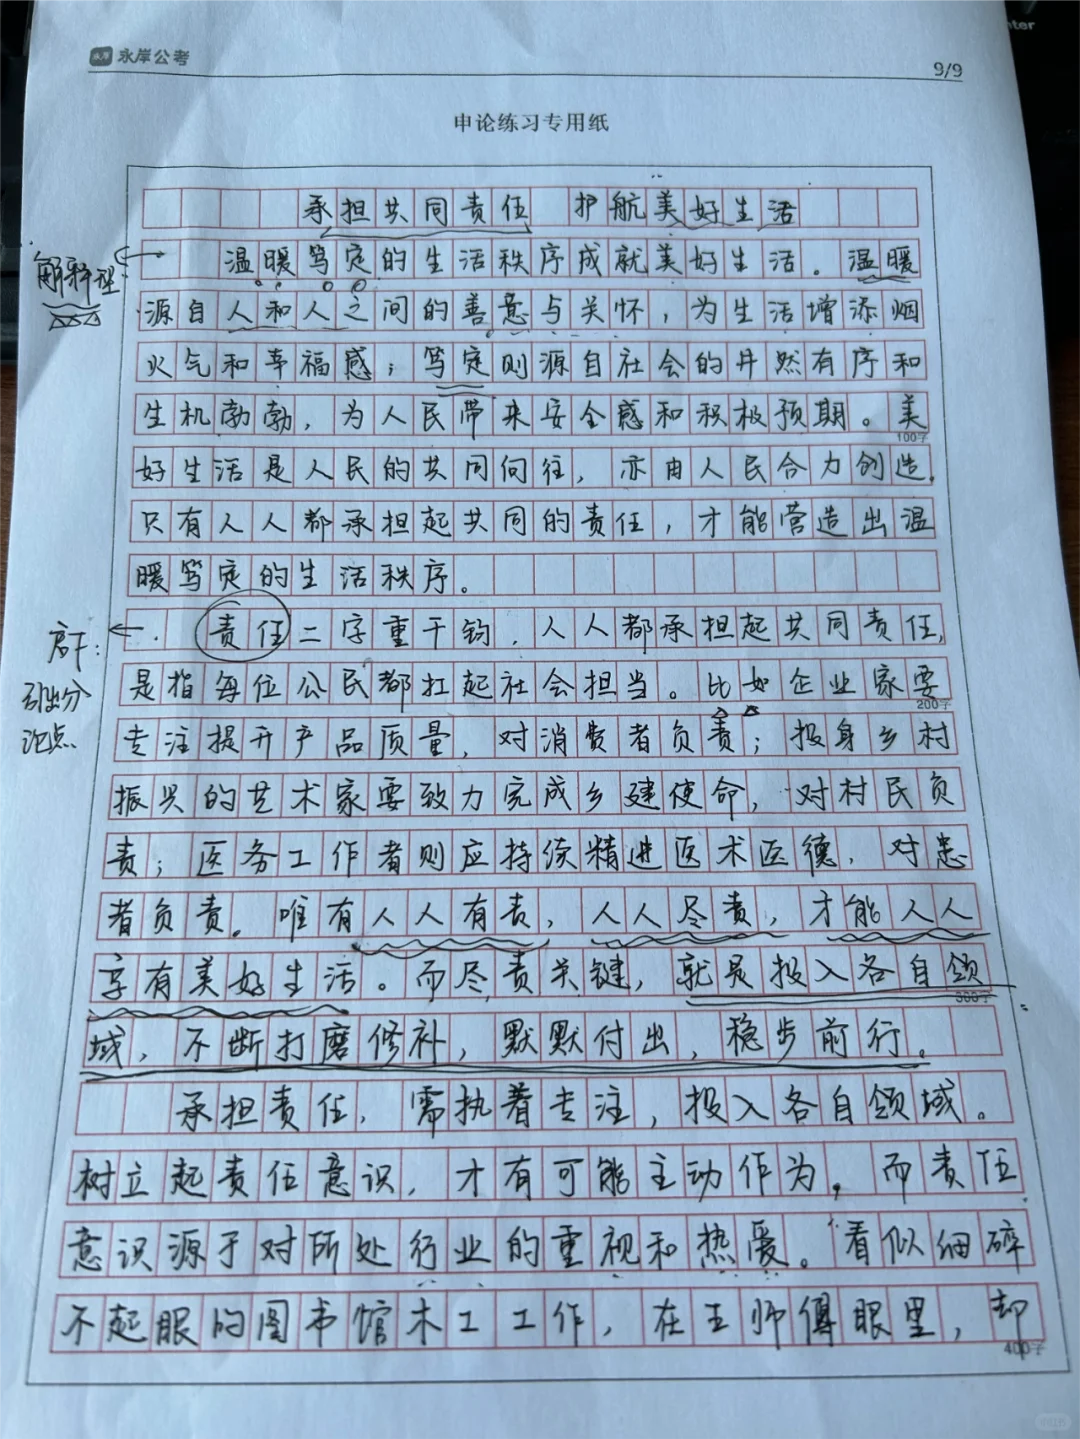 永岸公考
9/9
申论练习专用纸
承担共同责任 护航美好生活
解释型
温暖笃定的生活秩序成就美好生活。温暖
源自人和人之间的善意与关怀，为生活增添烟
火气和幸福感；笃定则源自社会的井然有序和
生机勃勃，为人民带来安全感和积极预期。美
100字
好生活是人民的共同向往，亦由人民合力创造。
只有人人都承担起共同的责任，才能营造出温
暖笃定的生活秩序。
引出分
论点
责任二字重千钧，人人都承担起共同责任，
是指每位公民都扛起社会担当。比如企业家要
200字
专注提升产品质量，对消费者负责；投身乡村
振兴的艺术家要致力完成乡建使命，对村民负
责；医务工作者则应持续精进医术医德，对患
者负责。唯有人人有责，人人尽责，才能人人
享有美好生活。而尽责关键，就是投入各自领
300字
域，不断打磨修补，默默付出，稳步前行。
承担责任，需执着专注，投入各自领域。
树立起责任意识，才有可能主动作为，而责任
意识源于对所处行业的重视和热爱。看似细碎
不起眼的图书馆木工工作，在王师傅眼里，却
400字